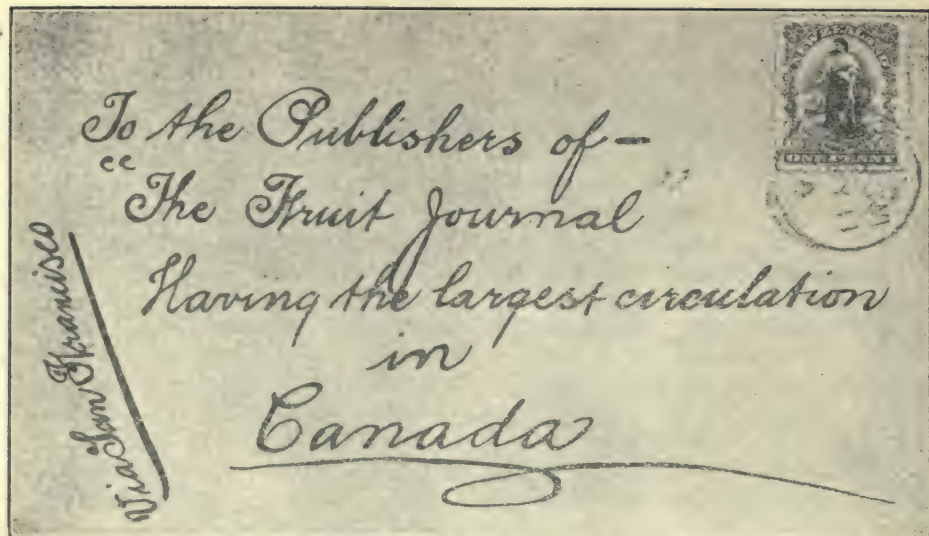 To the Publishers of —
"The Fruit Journal"
Having the largest circulation
in
Canada
Via San Francisco
NEW ZEALAND
ONE PENNY